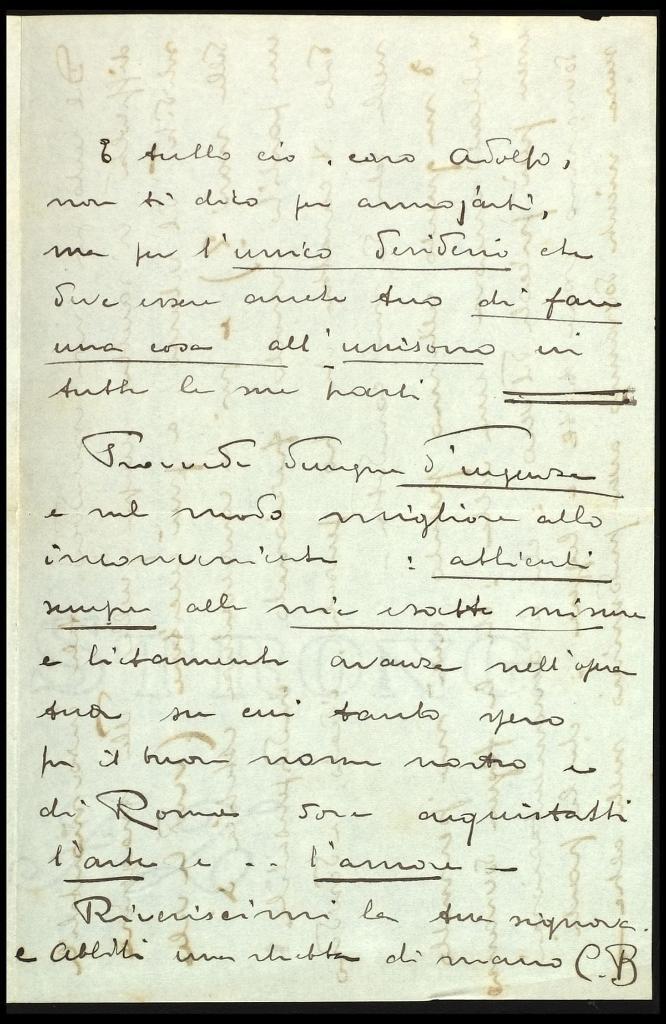 E tutto ciò, caro Adolfo,
non ti dico per annojarti,
ma per l'unico desiderio che
deve essere anche tuo di fare
una cosa all'unisono in
tutte le sue parti
Provvedi dunque d'urgenza
e nel modo migliore allo
inconveniente : attienti
sempre alle mie esatte misure
e lietamente avanza nell'opera
tua su cui tanto spero
per il buon nome nostro e
di Roma dove acquistasti
l'arte e .. l'amore –
Riveriscimi la tua signora.
e abbiti una stretta di mano C.B